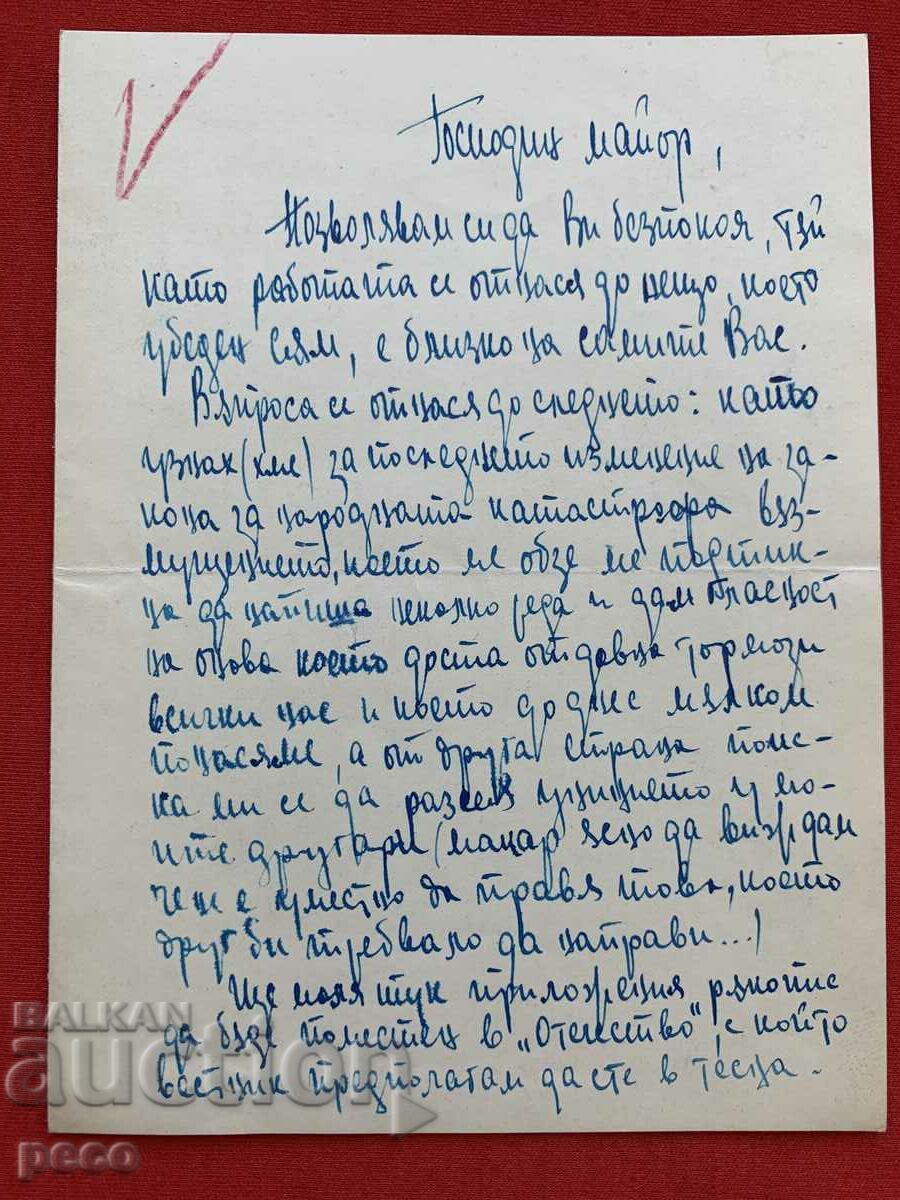 Господин майор,
Позволявам си да Ви безпокоя, тъй
като работата се отнася до нещо, което
убеден съм, е близко на самите Вас.
Въпроса се отнася до следнето: като
узнах (хме) за последнето изменение на за-
кона за народната катастрофа въз-
мущението, което ме обзе ме подтик-
на да напиша неколко реда и дам гласност
на онова което доста отдавна тормози
всички нас и което до днес мълком
понасяме, а от друга страна поис-
ка ми се да разсея унинието у мо-
ите другари (макар нещо да виждам
че не е уместно да правя това, което
друг би требвало да направи...)
Ще моля тук приложения ръкопис
да бъде поместен в „Отечество", с който
вестник предполагам да сте в тесна.
BALKAN
auction
peco